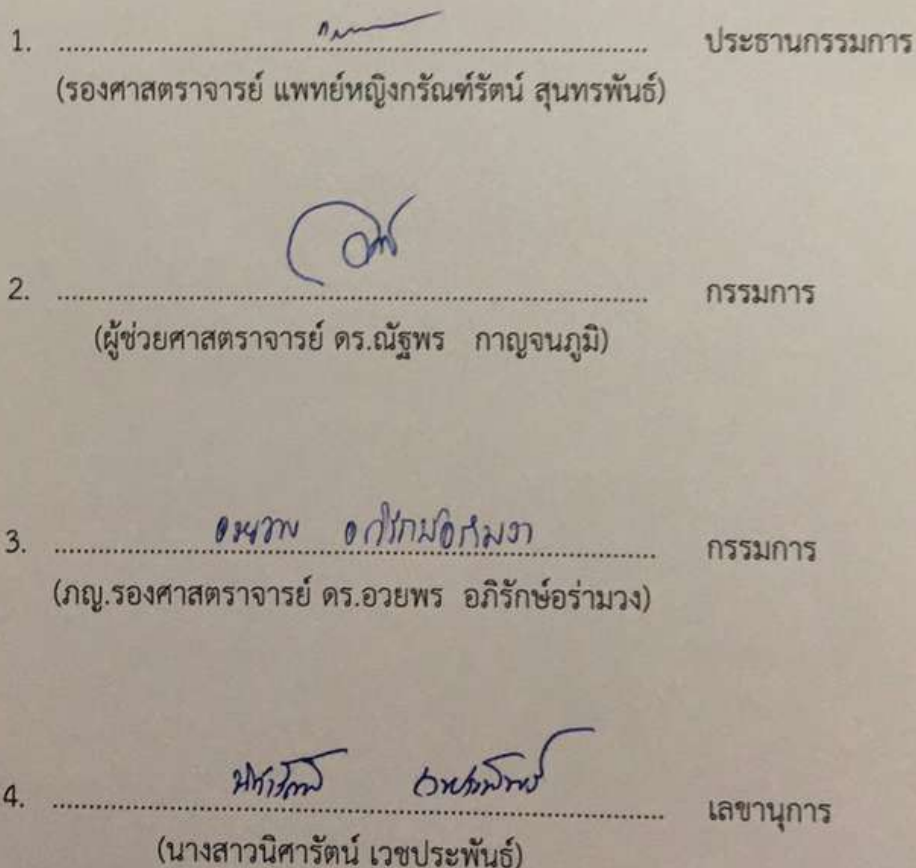 1. ........................................ ประธานกรรมการ
(รองศาสตราจารย์ แพทย์หญิงกรัณฑ์รัตน์ สุนทรพันธ์)
2. ........................................ กรรมการ
(ผู้ช่วยศาสตราจารย์ ดร.ณัฐพร กาญจนภูมิ)
3. อวยพร อภิรักษ์อร่ามวง กรรมการ
(ภญ.รองศาสตราจารย์ ดร.อวยพร อภิรักษ์อร่ามวง)
4. นิศารัตน์ เวชประพันธ์ เลขานุการ
(นางสาวนิศารัตน์ เวชประพันธ์)